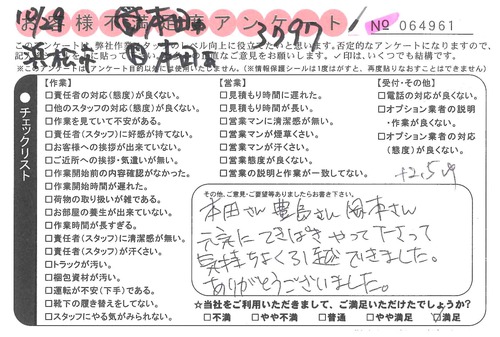 お客様不満足度アンケート
No 064961
10/29
3797
このアンケートは、弊社作業スタッフのレベル向上に役立てたいと思います。否定的なアンケートになりますので、
ご意見をお願いします。✓印は、いくつでも結構です。
※このアンケートは アンケート目的以外に使用いたしません。(※情報保護シールは1度はがすと、再度貼りなおすことはできません)
チェックリスト
【作業】
□責任者の対応(態度)が良くない。
□他のスタッフの対応(態度)が良くない。
□作業を見ていて不安がある。
□責任者(スタッフ)に好感が持てない。
□お客様への挨拶が出来ていない。
□ご近所への挨拶・気遣いが無い。
□作業開始前の内容確認がなかった。
□作業開始時間が遅れた。
□荷物の取り扱いが雑である。
□お部屋の養生が出来ていない。
□作業時間が長すぎる。
□責任者(スタッフ)に清潔感が無い。
□責任者(スタッフ)が汗くさい。
□トラックが汚い。
□梱包資材が汚い。
□運転が不安(下手)である。
□靴下の履き替えをしてない。
□スタッフにやる気がみられない。
【営業】
□見積もり時間に遅れた。
□見積もり時間が長い。
□営業マンに清潔感が無い。
□営業マンが煙草くさい。
□営業マンが汗くさい。
□営業態度が良くない。
□営業の説明と作業が一致してない。
【受付・その他】
□電話の対応が良くない。
□オプション業者の説明
・作業が良くない。
□オプション業者の対応
(態度)が良くない。
その他、ご意見・ご要望等ありましたらお書き下さい。
本田さん 豊島さん 岡本さん
元気に てきぱき やって下さって
気持ちよく引越できました。
ありがとうございました。
☆当社をご利用いただきまして、ご満足いただけたでしょうか?
□不満 □やや不満 □普通 □やや満足 ☑満足